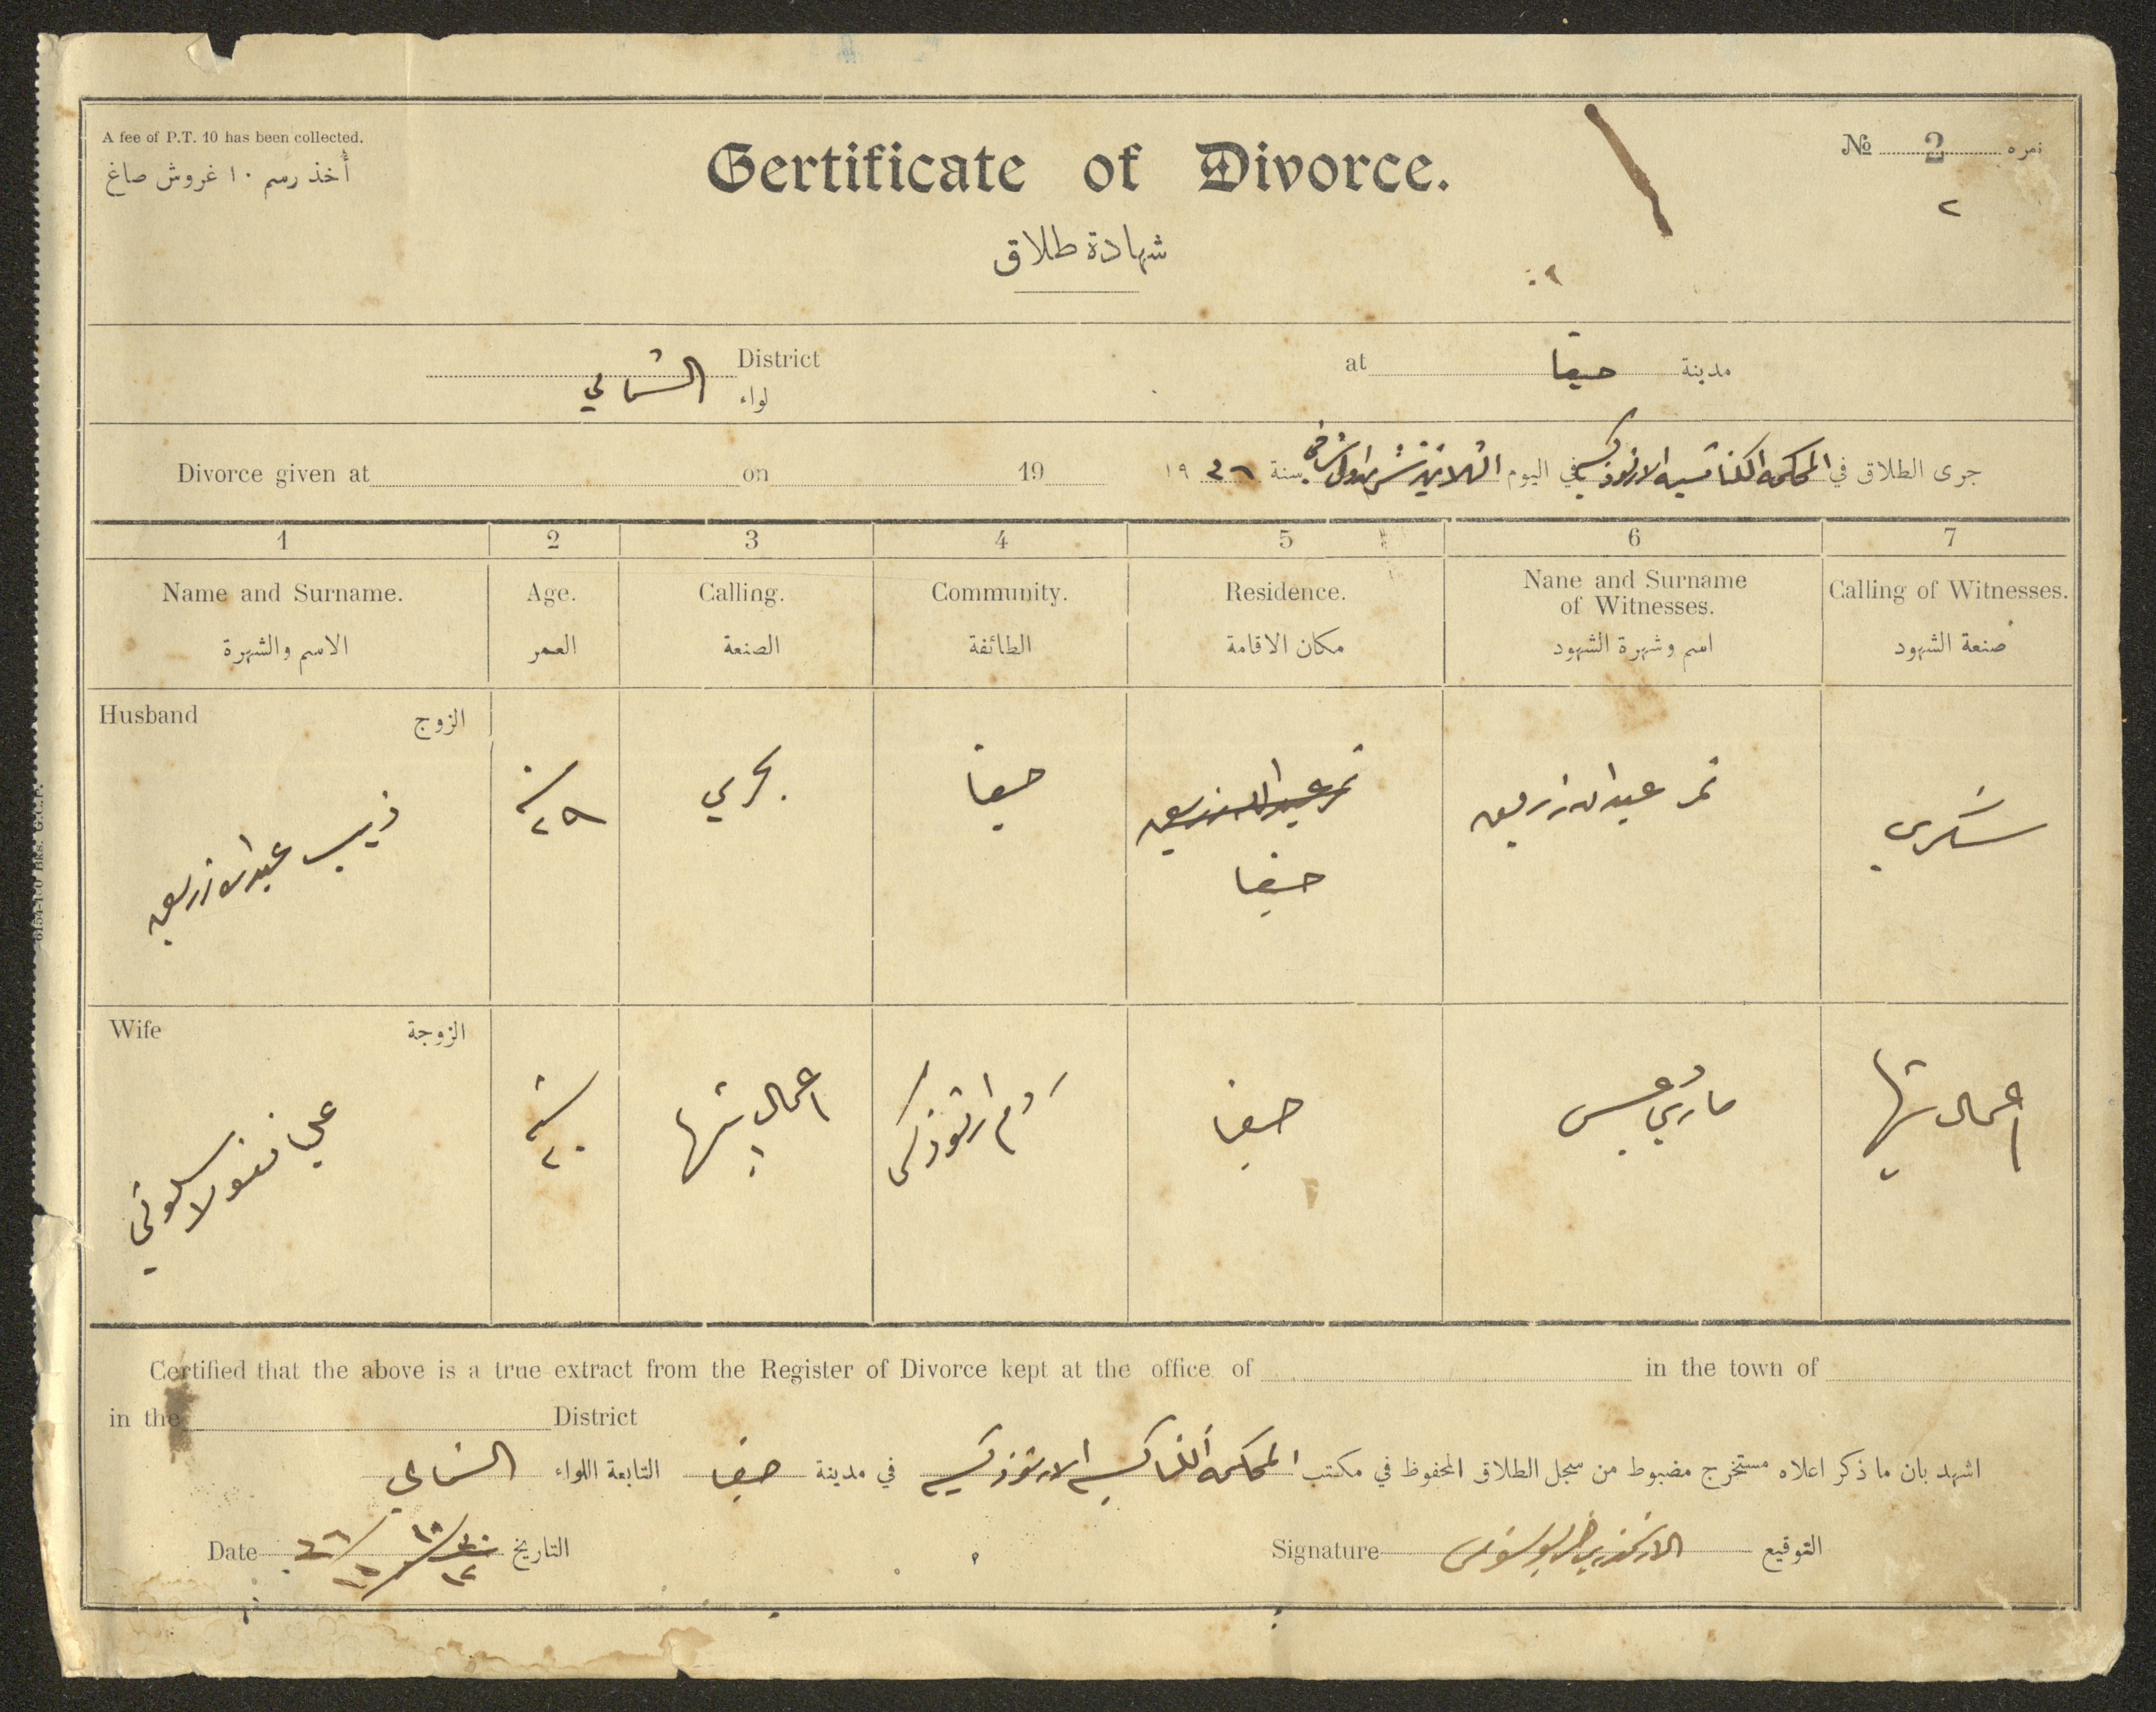 A fee of P.T. 10 has been collected.
أخذ رسم ١٠ غروش صاغ
Certificate of Divorce.
شهادة طلاق
№ 2 نمره
٢
District
لواء الشمالي
at حيفا مدينة
Divorce given at on 19
جرى الطلاق في المحكمة الكنائسيه الارثوذكسيه في اليوم الثلاثين تشرين اول سنة ١٩٢٦
1 2 3 4 5 6 7
Name and Surname. Age. Calling. Community. Residence. Nane and Surname of Witnesses. Calling of Witnesses.
الاسم والشهرة العمر الصنعة الطائفة مكان الاقامة اسم وشهرة الشهود صنعة الشهود
Husband الزوج
ذيب عبدالله زريق
سنة ٢٥
بحري
حيفا
نمر عبدالله زريق
حيفا
نمر عبدالله زريق
سكري
Wife الزوجة
نقولا
سنة ٢٠
اعمال بيتها
روم ارثوذكس
حيفا
ماري
اعمال بيتها
Certified that the above is a true extract from the Register of Divorce kept at the office of in the town of
in the District
اشهد بان ما ذكر اعلاه مستخرج مضبوط من سجل الطلاق المحفوظ في مكتب المحكمة الكنائسية الارثوذكسيه في مدينة حيفا التابعة اللواء الشمالي
Date التاريخ
Signature التوقيع
6154-100 Bks. G.C.P.